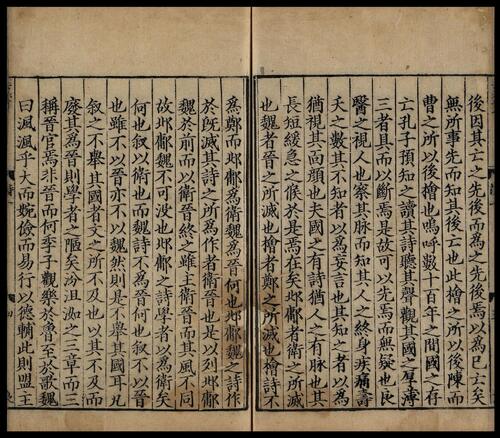 後因其亡之先後而為之先後焉以為已亡矣
無所事先而知其後亡也此檜之所以後陳而
曹之所以後檜也嗚呼數十百年之間國之存
亡孔子預知之讀其詩聽其聲觀其國之厚薄
三者具而以斷焉是故可以先焉而無疑也良
醫之視人也察其脈而知其人之終身疾痛壽
夭之數其不知者以為妄言也其知之者以為
猶視其面顏也夫國之有詩猶人之有脈也其
長短緩急之候於是焉在矣邶鄘者衛之所滅
也魏者晉之所滅也檜者鄭之所滅也檜詩不
為鄭而邶鄘為衛魏為晉何也邶鄘魏之詩作
於既滅其詩之所為作者衛晉也是以列邶鄘
魏於前而以衛晉終之雖主衛晉而其風不同
故邶鄘魏不可沒也邶鄘之詩學者以為衛矣
何也叙以衛也而魏詩不為晉何也叙不以晉
也雖不以晉亦不以魏然則是不舉其國耳凡
叙之不舉其國者文之所不及也以其不及而
廢其為晉則學者之陋矣汾沮洳之三章而三
稱晉官焉非晉而何季子觀樂於魯至於歌魏
曰渢渢乎大而婉儉而易行以德輔此則盟主